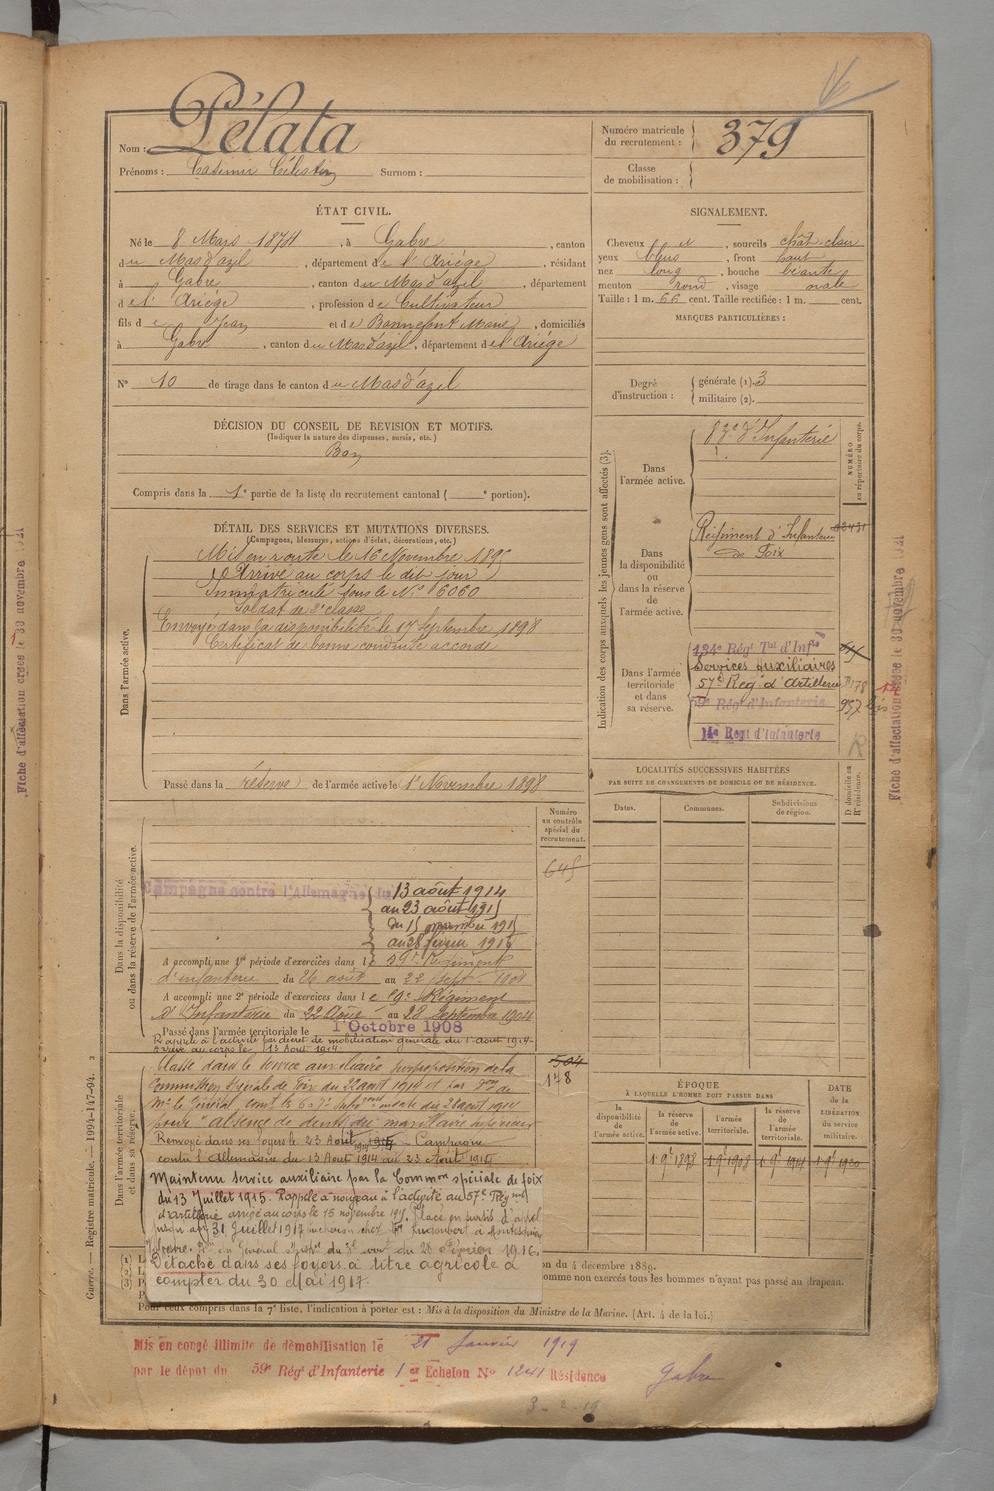 Nom : Pélata
Prénoms : Casimir Célestin Surnom :
Numéro matricule du recrutement : 379
Classe de mobilisation :
ÉTAT CIVIL.
Né le 8 Mars 1874, à Gabre, canton
du Mas d'azil, département de l'Ariège, résidant
à Gabre, canton du Mas d'azil, département
de l'Ariège, profession de Cultivateur
fils de Jean et de Bonnefont Marie, domiciliés
à Gabre, canton du Mas d'azil, département de l'Ariège
N° 10 de tirage dans le canton du Mas d'azil
SIGNALEMENT.
Cheveux et, sourcils chât. clair
yeux bleus, front haut
nez long, bouche béante
menton rond, visage ovale
Taille : 1 m. 66 cent. Taille rectifiée : 1 m. cent.
MARQUES PARTICULIÈRES :
Degré d'instruction : générale (1). 3
militaire (2).
DÉCISION DU CONSEIL DE REVISION ET MOTIFS.
(Indiquer la nature des dispenses, sursis, etc.)
Bon
Compris dans la 1e partie de la liste du recrutement cantonal ( e portion).
DÉTAIL DES SERVICES ET MUTATIONS DIVERSES.
(Campagnes, blessures, actions d'éclat, décorations, etc.)
Dans l'armée active.
Mis en route le 16 Novembre 1895
Arrivé au corps le dit jour
Immatriculé sous le N° 6060
Soldat de 2e classe
Envoyé dans la disponibilité le 17 Septembre 1898
Certificat de bonne conduite accordé
Passé dans la réserve de l'armée active le 1er Novembre 1898
Indication des corps auxquels les jeunes gens sont affectés (3).
NUMÉRO au répertoire du corps.
Dans l'armée active.
83e d'Infanterie
Dans la disponibilité ou dans la réserve de l'armée active.
Régiment d'Infanterie
de Foix
Dans l'armée territoriale et dans sa réserve.
134e Régt Tal d'Infie
Services Auxiliaires
57e Reg. d'Artillerie
59e Régt d'Infanterie
14e Regt d'Infanterie
957 bis
Fiche d'affectation créée le 30 novembre 1921
Fiche d'affectation créée le 30 novembre 1921
LOCALITÉS SUCCESSIVES HABITÉES
PAR SUITE DE CHANGEMENTS DE DOMICILE OU DE RÉSIDENCE.
Dates.
Communes.
Subdivisions de région.
D. domicile ou R. résidence.
Numéro au contrôle spécial du recrutement.
645
Dans la disponibilité ou dans la réserve de l'armée active.
Campagne contre l'Allemagne du 13 août 1914
au 23 août 1915
du 15 novembre 1915
au 28 février 1916
A accompli une 1re période d'exercices dans le 59e Régiment
d'infanterie du 26 août au 22 Sept. 1901
A accompli une 2e période d'exercices dans le 59e Régiment
d'Infanterie du 22 Août au 28 Septembre 1904
Passé dans l'armée territoriale le 1 Octobre 1908
Rappelé à l'activité par décret de mobilisation générale du 1er août 1914.
Arrivé au corps le 13 Août 1914
504
178
Dans l'armée territoriale et dans sa réserve.
Classé dans le service auxiliaire sur proposition de la
Commission Spéciale de Foix du 22 août 1914 et par Don de
Mr le Général en date du 28 août 1914
pour "absence de dents du maxillaire inférieur
Renvoyé dans ses foyers le 23 Août 1915 - Campagne
contre l'Allemagne du 13 Août 1914 au 23 Août 1915
Maintenu service auxiliaire par la Common spéciale de foix
du 13 Juillet 1915. Rappelé à nouveau à l'activité au 57e Régment
d'artillerie arrivé au corps le 15 novembre 1915. Placé en sursis d'appel
jusqu'au 31 Juillet 1917
du 28 Février 1916.
Détaché dans ses foyers à titre agricole à
compter du 30 Mai 1917.
ÉPOQUE
À LAQUELLE L'HOMME DOIT PASSER DANS
la disponibilité de l'armée active.
la réserve de l'armée active.
l'armée territoriale.
la réserve de l'armée territoriale.
DATE de la LIBÉRATION du service militaire.
1 9e 1898
1 9e 1908
1 9e 1914
1 9e 1920
on du 4 décembre 1889.
omme non exercés tous les hommes n'ayant pas passé au drapeau.
Pour ceux compris dans la 7e liste, l'indication à porter est : Mis à la disposition du Ministre de la Marine. (Art. 4 de la loi.)
Guerre. — Registre matricule. — 1994-147-94.
Mis en congé illimité de démobilisation le 21 Janvier 1919
par le dépôt du 59e Régt d'Infanterie 1er Echelon N° 1241 Résidence Gabre
3-2-19